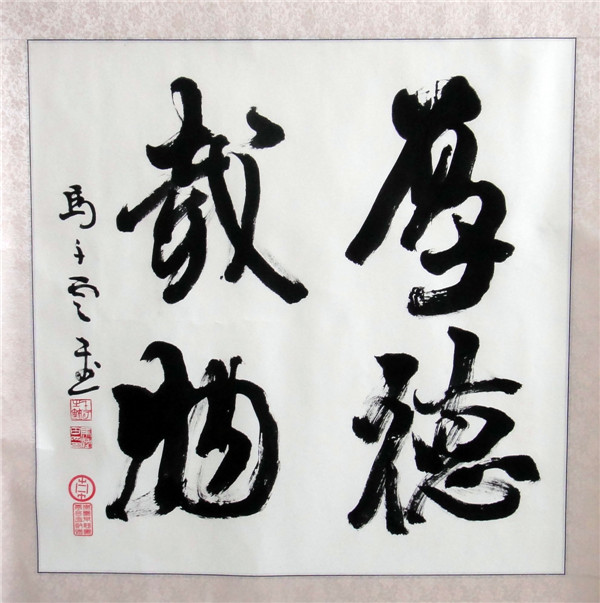 厚德
载物
马千云书